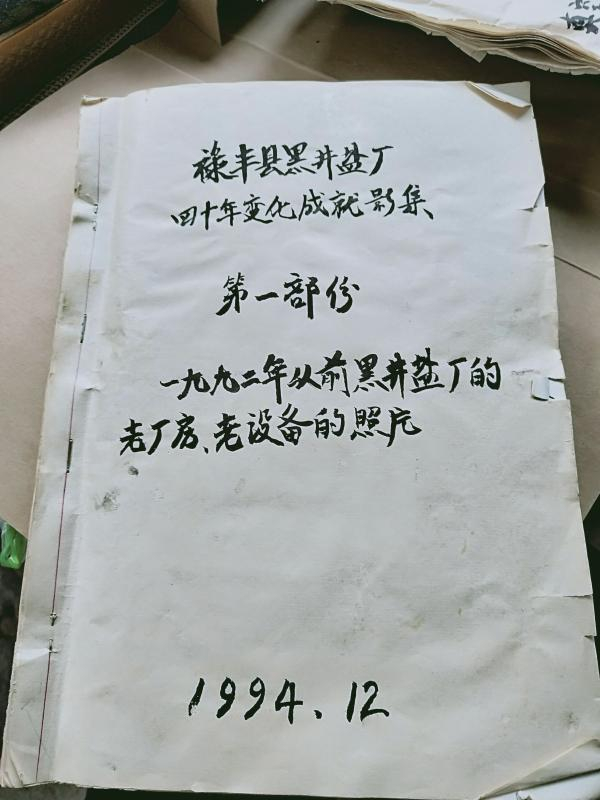 禄丰县黑井盐厂
四十年变化成就影集
第一部份
一九九二年从前黑井盐厂的
老厂房、老设备的照片
1994.12